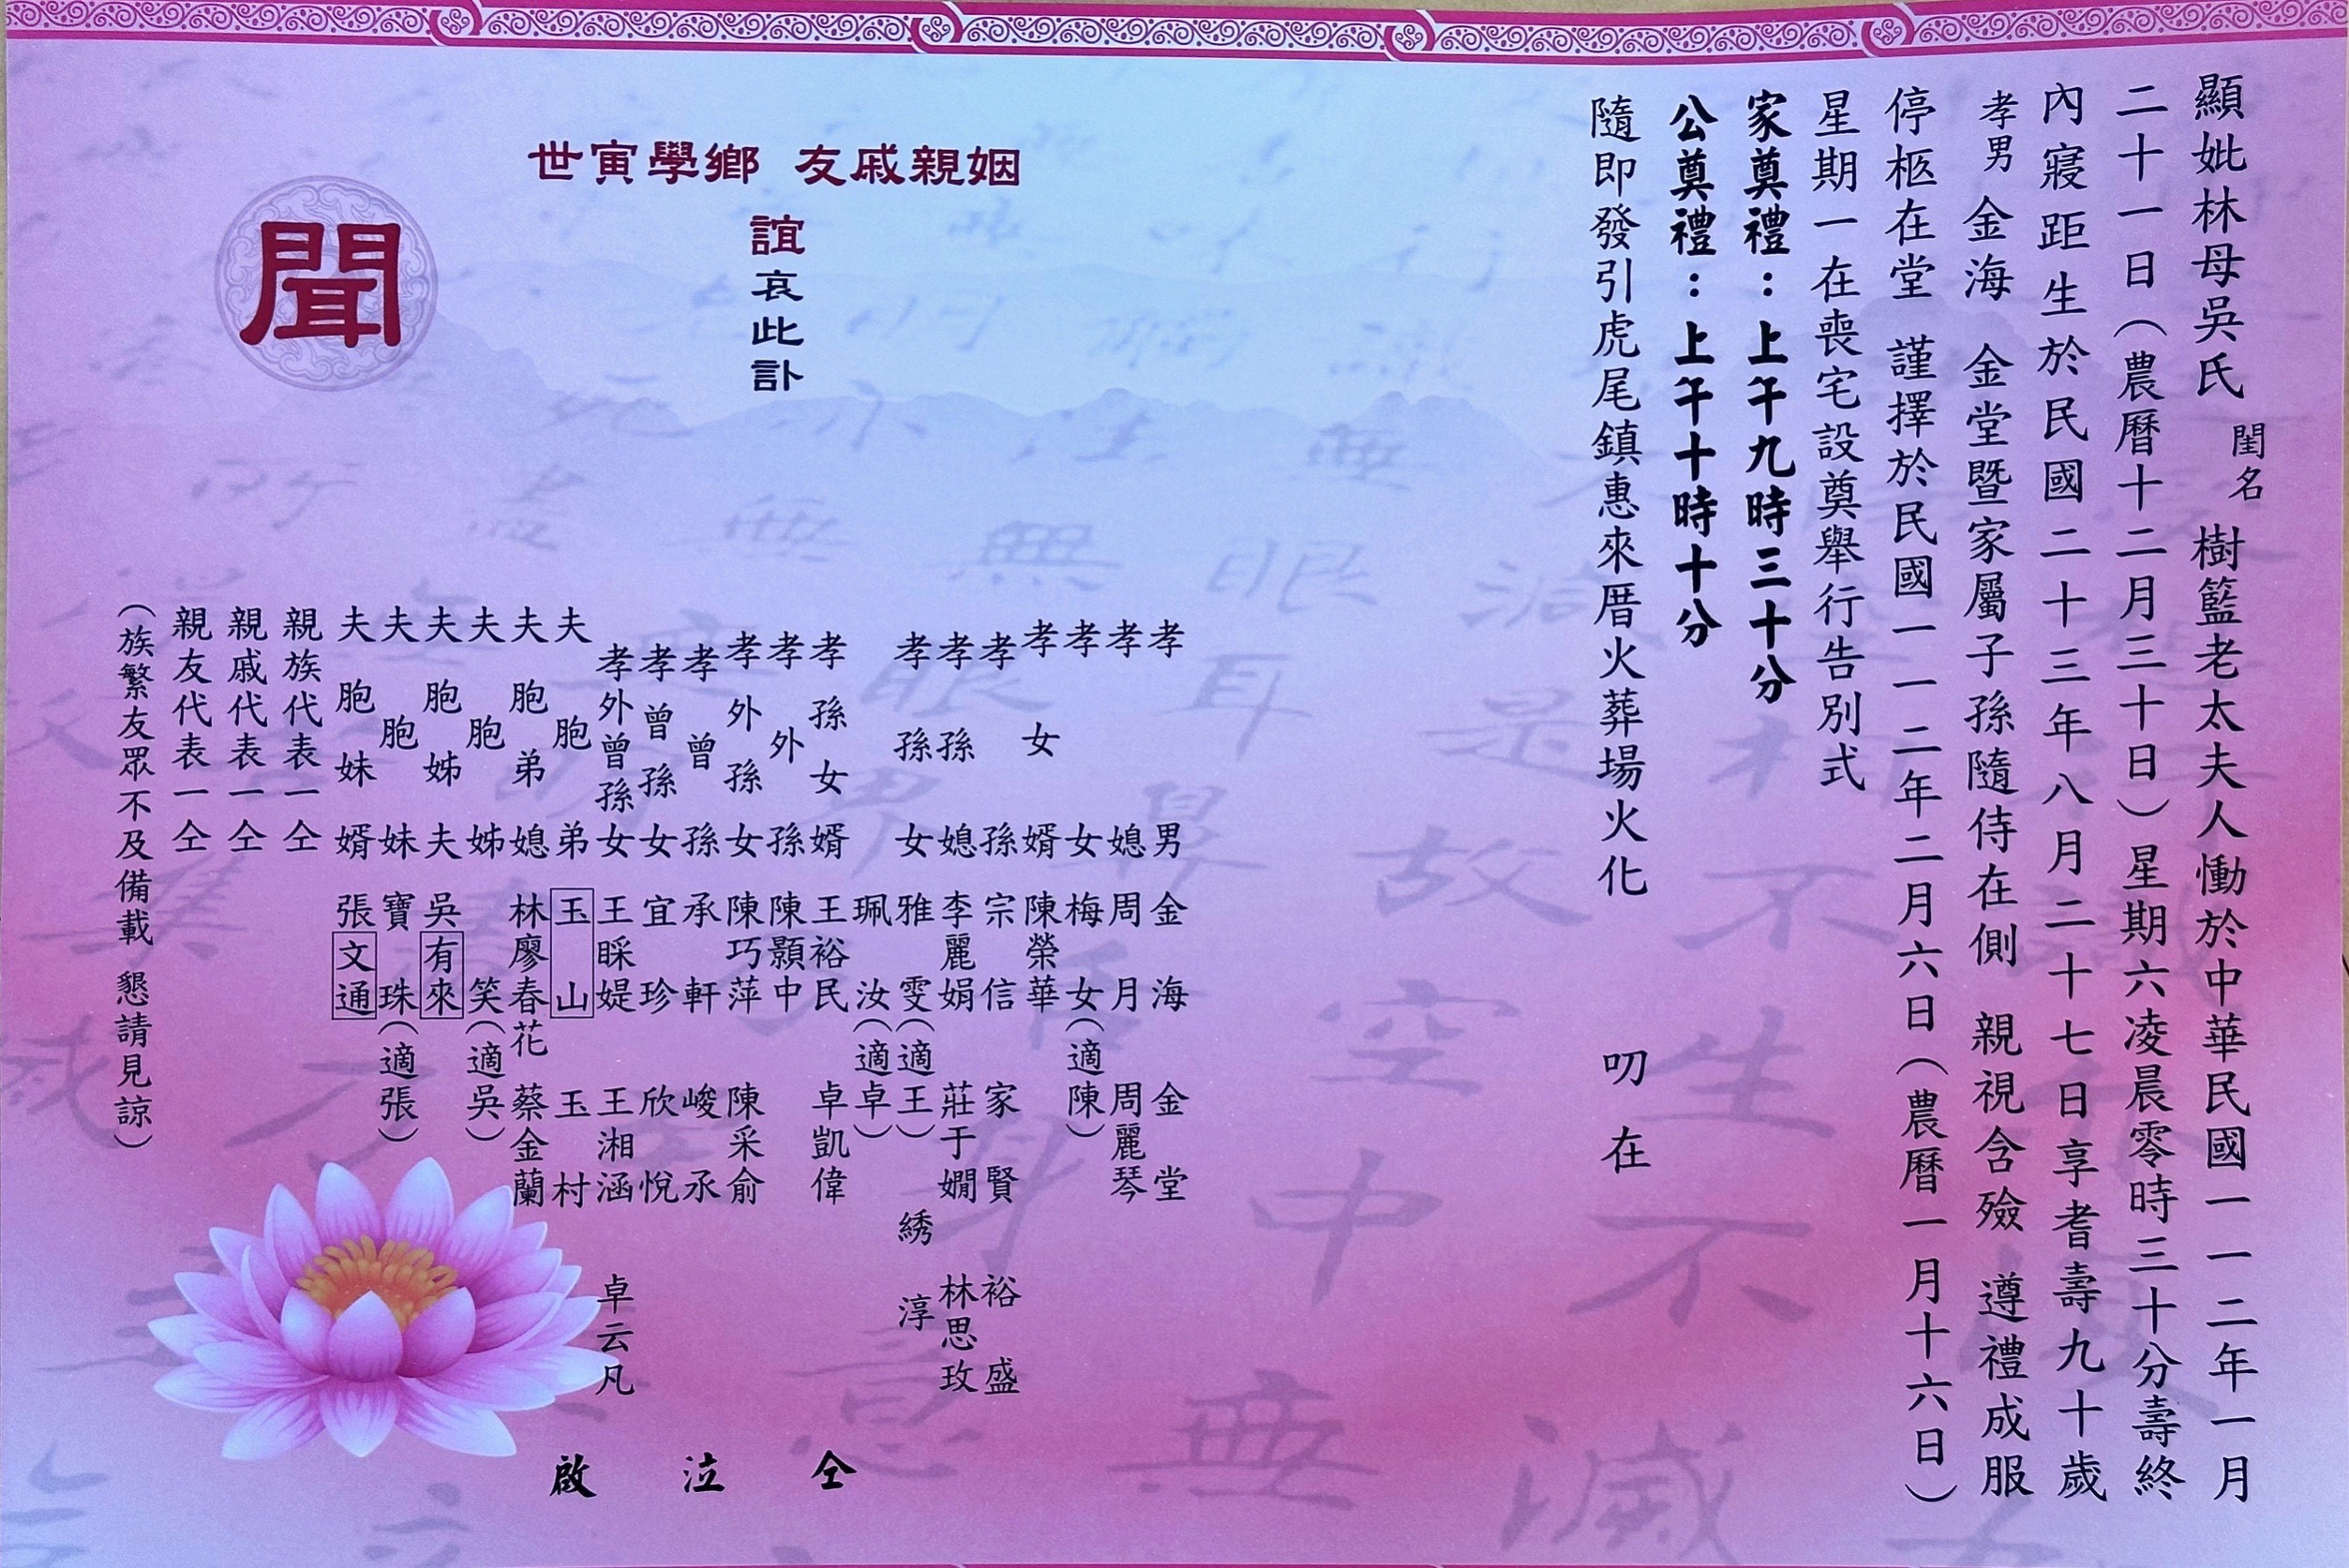 顯妣林母吳氏 閨名 樹籃老太夫人慟於中華民國一一二年一月
二十一日（農曆十二月三十日）星期六凌晨零時三十分壽終
內寢距生於民國二十三年八月二十七日享耆壽九十歲
孝男 金海 金堂暨家屬子孫隨侍在側 親視含殮 遵禮成服
停柩在堂 謹擇於民國一一二年二月六日（農曆一月十六日）
星期一在喪宅設奠舉行告別式
家奠禮：上午九時三十分
公奠禮：上午十時十分
隨即發引虎尾鎮惠來厝火葬場火化
叨在
姻親戚友 鄉學寅世
誼
哀此訃
聞
孝男 金海 金堂
孝媳 周月 周麗琴
孝女 梅女（適陳）
孝女婿 陳榮華
孝孫 宗信 家賢 裕盛
孝孫媳 李麗娟 莊于嫺 林思玫
孝孫女 雅雯（適王） 綉淳
珮汝（適卓）
孝孫女婿 王裕民 卓凱偉
孝外孫 陳顥中
孝外孫女 陳巧萍 陳采俞
孝曾孫 承軒 峻丞
孝曾孫女 宜珍 欣悅
孝外曾孫女 王睬媞 王湘涵 卓云凡
夫胞弟 玉山 玉村
夫胞弟媳 林廖春花 蔡金蘭
夫胞姊 笑（適吳）
夫胞姊夫 吳有來
夫胞妹 寶珠（適張）
夫胞妹婿 張文通
親族代表一仝
親戚代表一仝
親友代表一仝
（族繁友眾不及備載 懇請見諒）
仝泣啟